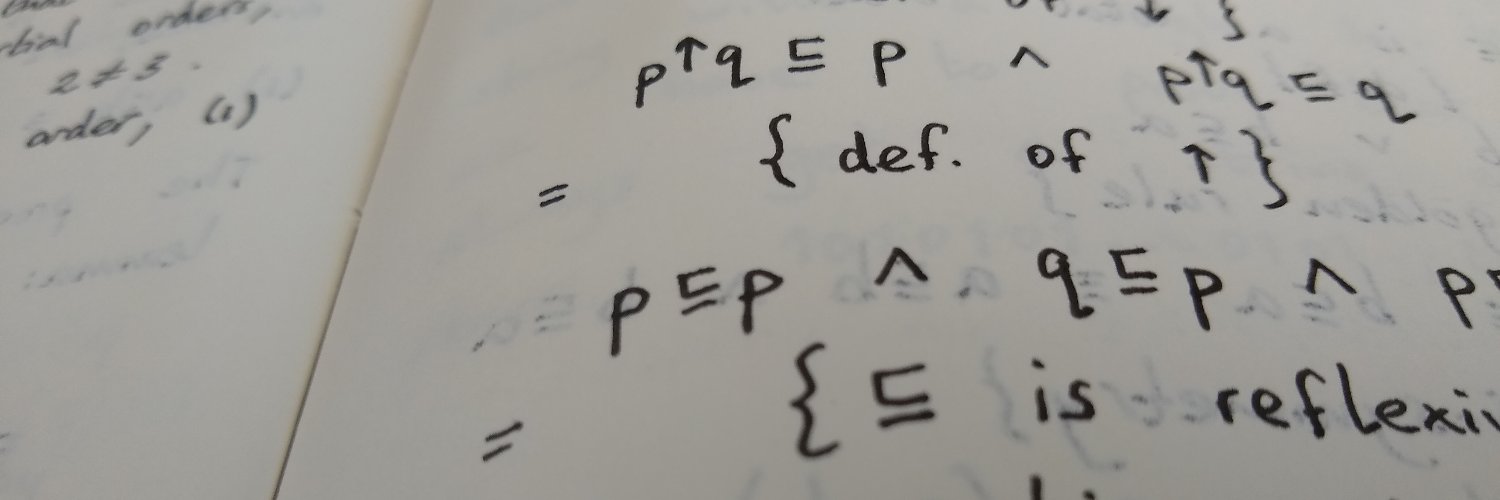 orders,
2 ≠ 3 .
order, (1)
of ↓ }
p↑q ⊑ p ∧ p↑q ⊑ q
= { def. of ↑ }
p ⊑ p ∧ q ⊑ p ∧ p ⊑
= { ⊑ is reflexi